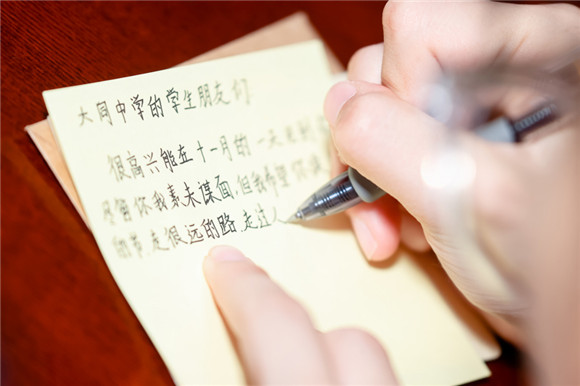 大同中学的学生朋友们
很高兴能在十一月的一天来到
尽管你我素未谋面,但我希望你
走很远的路,走过